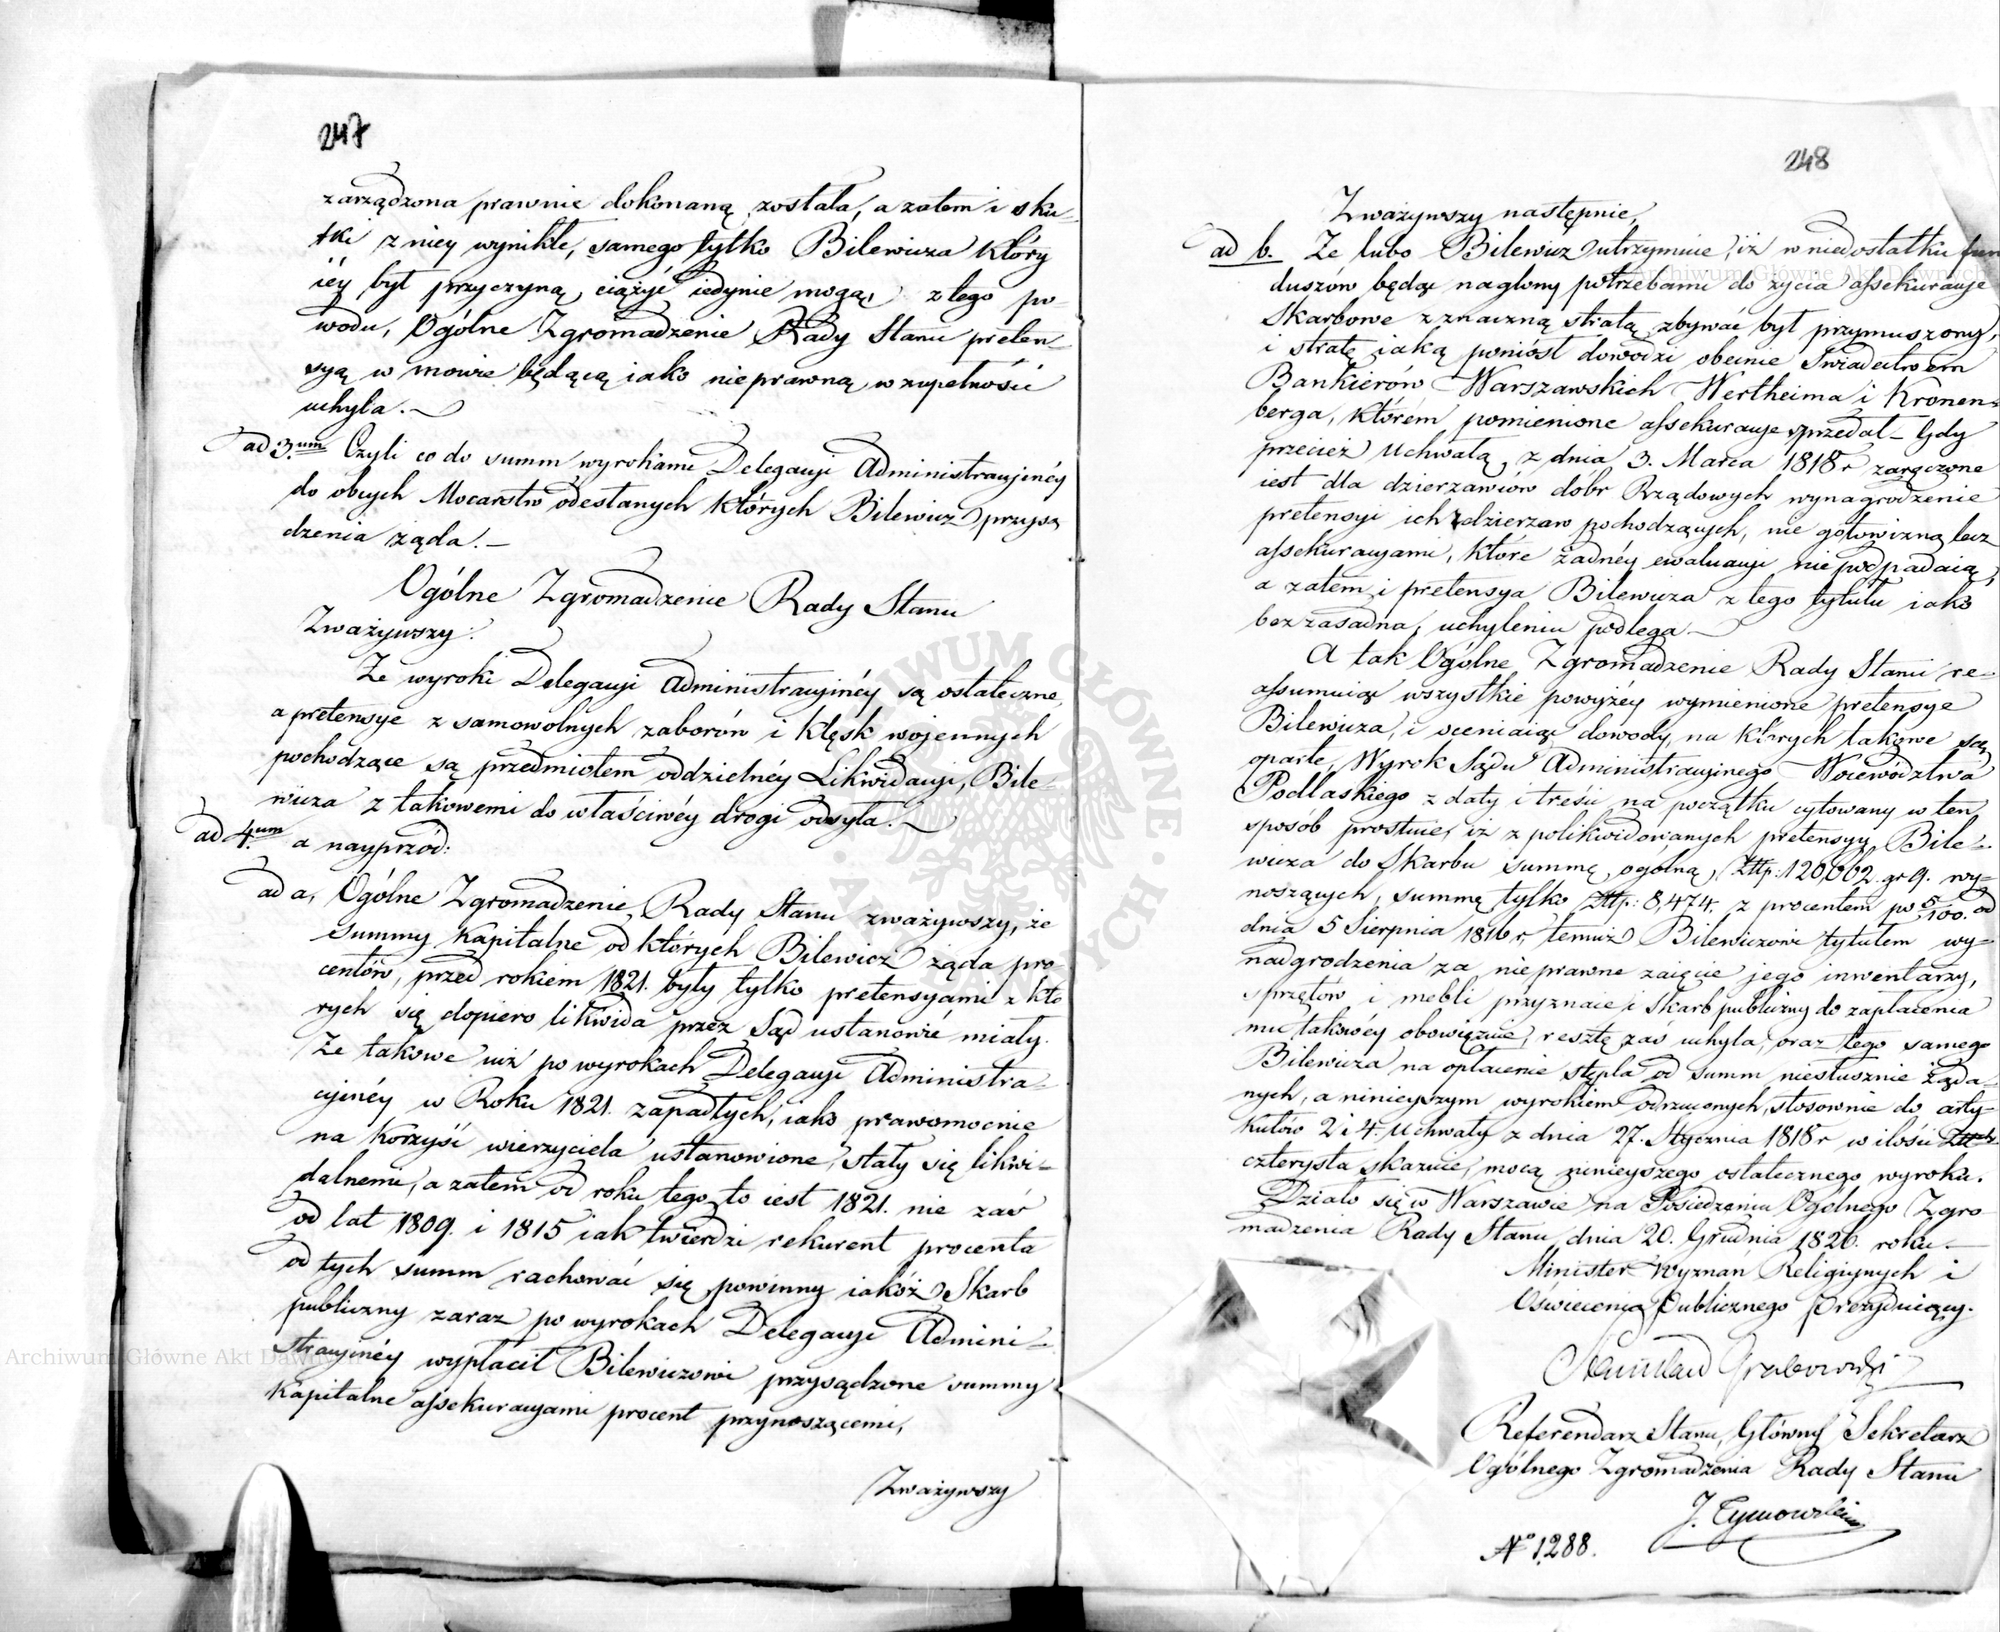 247
zarządzona prawnie dokonaną została, a zatem i sku-
tki z niey wynikłe, samego tylko Bilewicza który
iéy był przyczyną, ciążyć iedynie mogą, z tego po-
wodu, Ogólne Zgromadzenie Rady Stanu preten-
syą w mowie będącą iako nieprawną w zupełności
uchyla.—
ad 3.um Czyli co do summ wyrokami Delegacyi Administracyinéy
do obcych Mocarstw odesłanych których Bilewicz przysą
dzenia żąda.—
Ogólne Zgromadzenie Rady Stanu
Zważywszy:
Że wyroki Delegacyi Administracyinéy są ostateczne,
a pretensye z samowolnych zaborów i klęsk wojennych
pochodzące są przedmiotem oddzielnéy Likwidacyi, Bile-
wicza z takowemi do właściwéy drogi odsyła.—
ad 4.um a nayprzód:
ad a, Ogólne Zgromadzenie Rady Stanu zważywszy, że
Summy Kapitalne od których Bilewicz żąda pro-
centów, przed rokiem 1821. były tylko pretensyami z któ
rych się dopiero likwida przez Sąd ustanowić miały.
Że takowe iuż po wyrokach Delegacyi Administra-
cyinéy w Roku 1821. zapadłych, iako prawomocnie
na korzyść wierzyciela ustanowione, stały się likwi-
dalnemi, a zatem od roku tego to iest 1821. nie zaś
od lat 1809. i 1815 iak twierdzi rekurent procenta
od tych summ rachować się powinny iakóż Skarb
publiczny zaraz po wyrokach Delegacyi Admini-
stracyinéy wypłacił Bilewiczowi przysądzone summy
Kapitalne assekuracyami procent przynoszącemi,
Zważywszy
248
Zważywszy następnie,
ad b. Że lubo Bilewicz utrzymuie, iż w niedostatku fun
duszów będąc naglony potrzebami do życia assekuracye
Skarbowe z znaczną stratą zbywać był przymuszony,
i stratę iaką poniósł dowodzi obecnie Świadectwem
Bankierów Warszawskich Wertheima i Kronen-
berga, którém pomienione assekuracye sprzedał – Gdy
przecież Uchwałą z dnia 3. Marca 1818 r zaręczone
iest dla dzierzawców dobr Rządowych wynagrodzenie
pretensyi ich z dzierzaw pochodzących, nie gotowizną lecz
assekuracyami, które żadnéy ewaluacyi nie podpadaią,
a zatem i pretensya Bilewicza z tego tytułu iako
bezzasadna, uchyleniu podlega —
A tak Ogólne Zgromadzenie Rady Stanu re-
assumuiąc wszystkie powyżéy wymienione pretensye
Bilewicza, i oceniaiąc dowody, na których takowe są
oparte, Wyrok Sądu Administracyinego Woiewództwa
Podlaskiego z daty i treści na początku cytowany w ten
sposób prostuie, iż z polikwidowanych pretensyy Bile-
wicza do Skarbu summę ogólną, Złłp: 120,662. gr 9. wy-
noszących, summę tylko Złłp: 8,474. z procentem po 5/100. od
dnia 5 Sierpnia 1816 r, temuż Bilewiczowi tytułem wy-
nadgrodzenia za nieprawne zaięcie jego inwentarzy,
sprzętów i mebli przyznaie i Skarb publiczny do zapłacenia
mu takowéy obowięzuie, resztę zaś uchyla, oraz tego samego
Bilewicza na opłacenie stępla od summ niesłusznie żąda-
nych, a ninieyszym wyrokiem odrzuconych, stosownie do arty-
kułów 2 i 4. Uchwały z dnia 27. Stycznia 1818 r w ilości
czterysta skazuie, mocą ninieyszego ostatecznego wyroku.
Działo się w Warszawie na Posiedzeniu Ogólnego Zgro-
madzenia Rady Stanu dnia 20. Grudnia 1826. roku.—
Minister Wyznań Religiynych i
Oświecenia Publicznego Prezyduiący.
Stanisław Grabowski
Referendarz Stanu, Główny Sekretarz
Ogólnego Zgromadzenia Rady Stanu
J. Tymowski
No 1,288.
Archiwum Główne Akt Dawnych
Archiwum Główne Akt Dawnych
ARCHIWUM GŁÓWNE AKT DAWNYCH